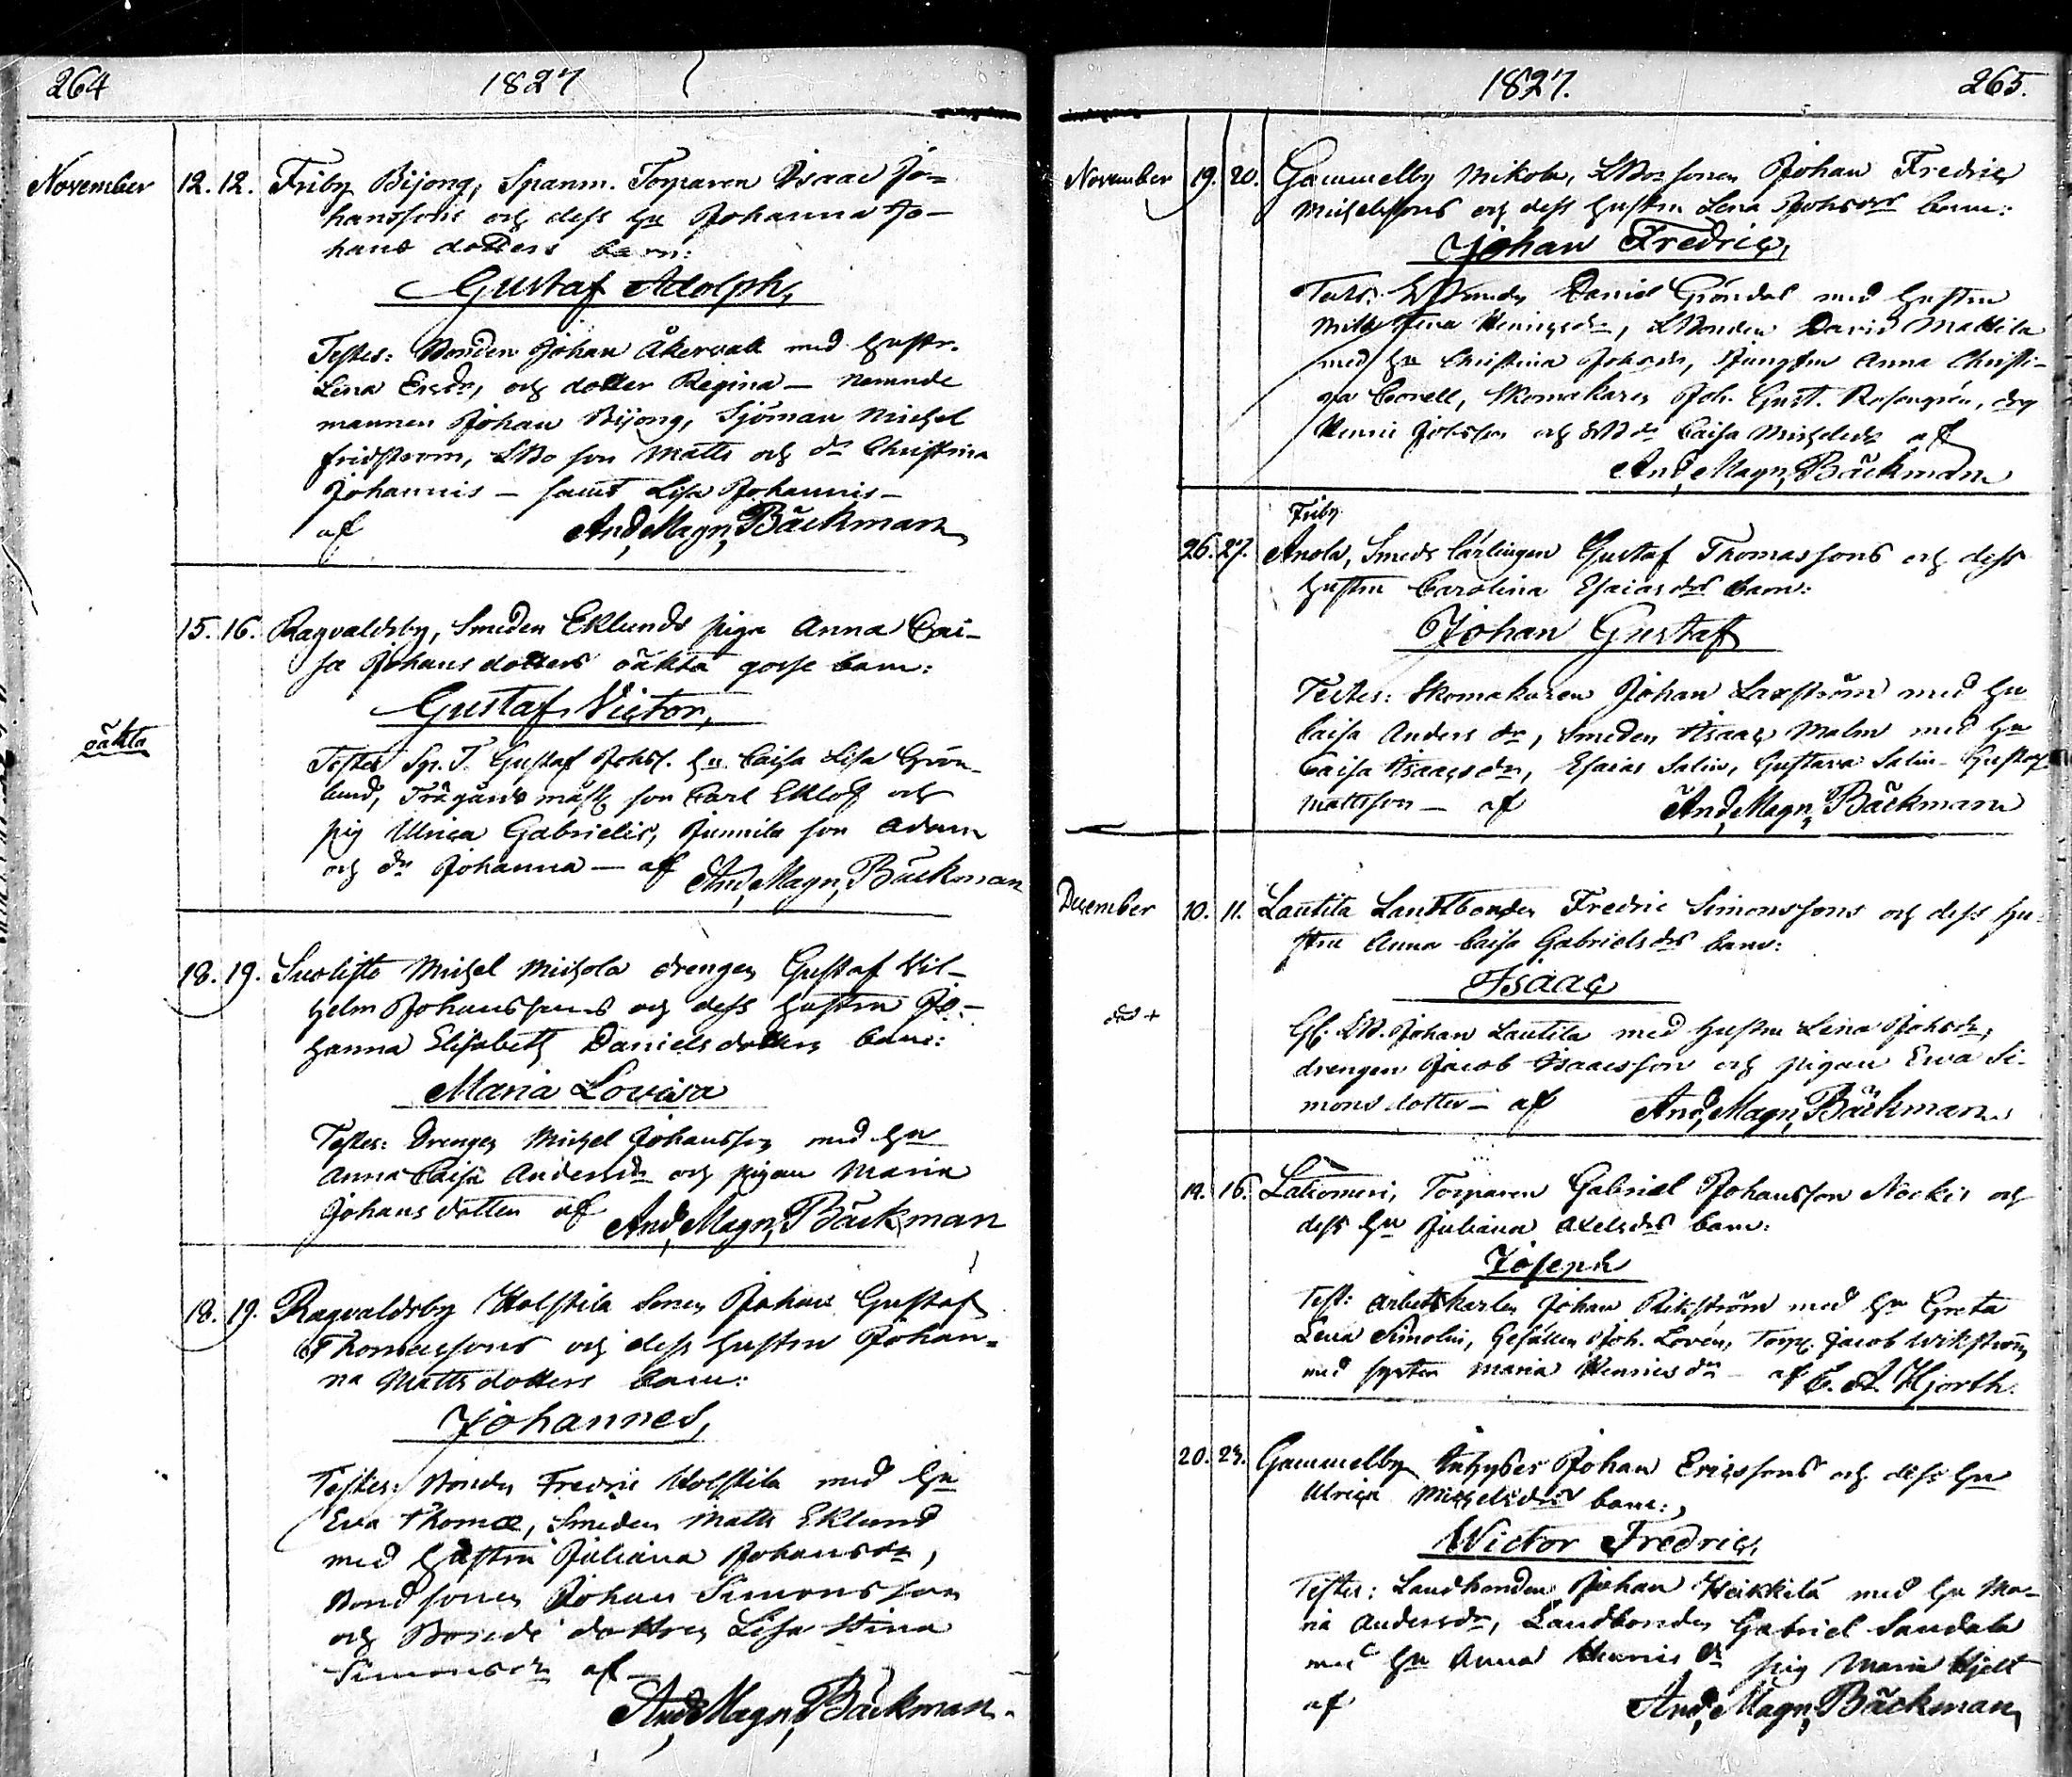 264 1827
November 12. 12. Friby Bijong, Spanm. Torparen Isaac Jo=
hanssons och dess hu Johanna Jo-
hans dotters barn:
Gustaf Adolph,
Testes: Bonden Johan Åkervall med hustr.
Lena Ersdr, och dotter Regina — Nemnde
mannen Johan Bijong, Sjöman Michel
fridstrom, LBo son Matts och dr Christina
Johannis — samt Lisa Johannis —
af And. Magn. Bäckman
15. 16. Ragvaldsby, Smeden Eklunds piga Anna Cai-
sa Johans dotters oäkta gosse barn:
Gustaf Victor,
oäkta
Testes Sp. T. Gustaf Johss. hu Caisa Lisa Grön-
lund, Trägårds mäst son Carl Eklöf och
pig Ulrica Gabrielis, Junnila son Adam
och dr Johanna — af And. Magn. Bäckman
18. 19. Suolisto Michel Michola drengen Gustaf Wil-
helm Johanssons och dess hustru Jo-
hanna Elisabeth Daniels dotters barn:
Maria Lovisa
Testes: Drengen Michel Johansson med hu
Anna Caisa Andersdr och pigan Maria
Johans dotter af And. Magn. Bäckman
18. 19. Ragvaldsby Kolstila Sonen Johan Gustaf
Thomassons och dess hustru Johan=
na Matts dotters barn:
Johannes,
Testes: Bonden Fredric Kolstila med hu
Eva Thomæ, Smeden Matts Eklund
med hustru Juliana Johansdr,
Bond sonen Johan Simonsson
och Bonde dottren Lisa Stina
Simonsdr af
And. Magn. Bäckman.
1827. 265.
November 19. 20. Gammelby Mikola, LBo sonen Johan Fredric
Michelssons och dess hustru Lena Johsdrs barn:
Johan Fredric,
Test: Daniel Gröndal med hustru
Henricsdr, LBonden David Mattila
med hu Christina Johsdr, Jungfru Anna Christi-
na Corell, Skomakaren Joh. Gust. Rosengrén, drg
Henric Johsson och Caisa Michelsdr af
And. Magn. Bäckman
Friby
26. 27. Anola, Smeds lärlingen Gustaf Thomassons och dess
hustru Carolina Esaiasdrs barn:
Johan Gustaf
Testes: Skomakaren Johan Laxström med hu
Caisa Anders dr, Smeden Isaac Malm med hu
Caisa Isaacsdr, Esaias Salin, Gustava Salin - Gustaf
Mattsson — af And. Magn. Bäckman
December 10. 11. Lautila Landtbonden Fredric Simonssons och dess hu-
stru Anna Caisa Gabrielsdrs barn:
Isaac
Gl. LB. Johan Lautila med hustru Lena Johsdr,
drengen Jacob Isaacsson och pigan Eva Si-
mons dotter — af And. Magn. Bäckman
14. 16. Latomeri, Torparen Gabriel Johansson Nockis och
dess hu Juliana Axelsdrs barn:
Joseph
Test: Arbetskarlen Johan Rikström med hu Greta
Lena Simolin, Gesällen Joh. Lovén, Torp. Jacob Wikström
med syster Maria Henricsdr — af C. A. Hjorth.
20. 23. Gammelby Inhyses Johan Ericssons och dess hu
Ulrica Michelsdrs barn:
Wictor Fredric,
Testes: Landbonden Johan Heikkilä med hu Ma-
ria Andersdr, Landbonden Gabriel Sandala
med hu Anna Henrics dr pig Maria Hjelt
af And. Magn. Bäckman